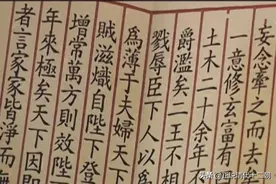 妄念牽之而去
一意修玄富有
土木二十余年
爵濫矣二王不相
戮辱臣下人以為
為薄于夫婦天下
賊滋熾自陛下登
增常萬方則效陛
年來極矣天下因即
者言家家皆淨而無